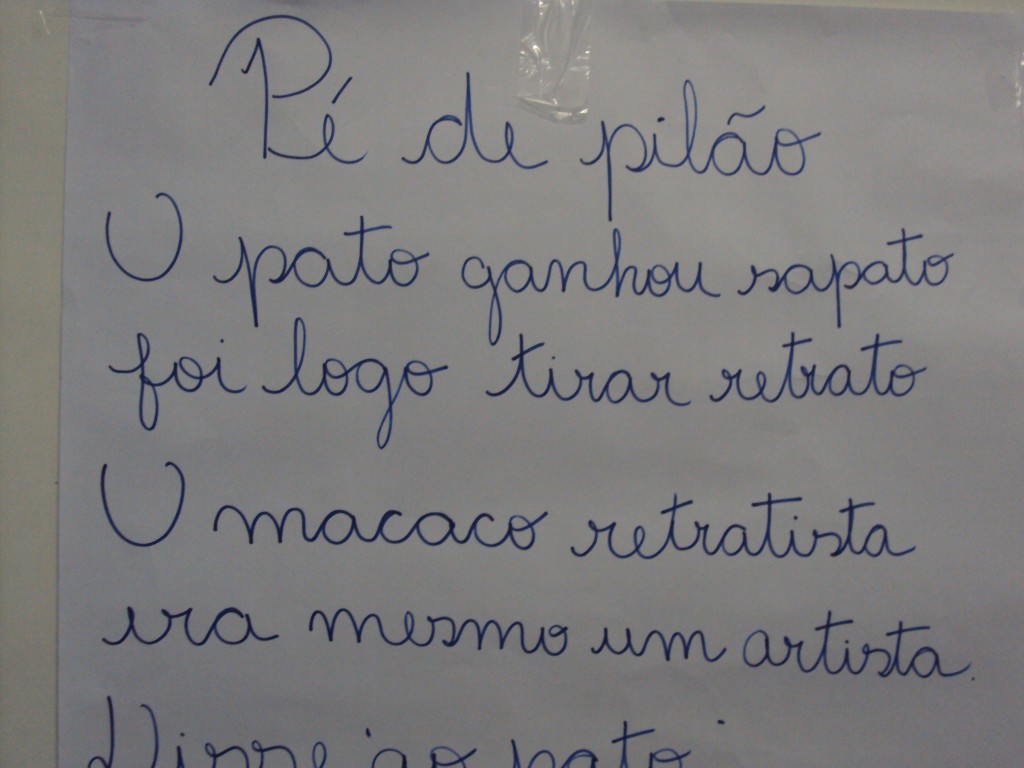 Pé de pilão
O pato ganhou sapato
foi logo tirar retrato
O macaco retratista
era mesmo um artista.
Disse ao pato